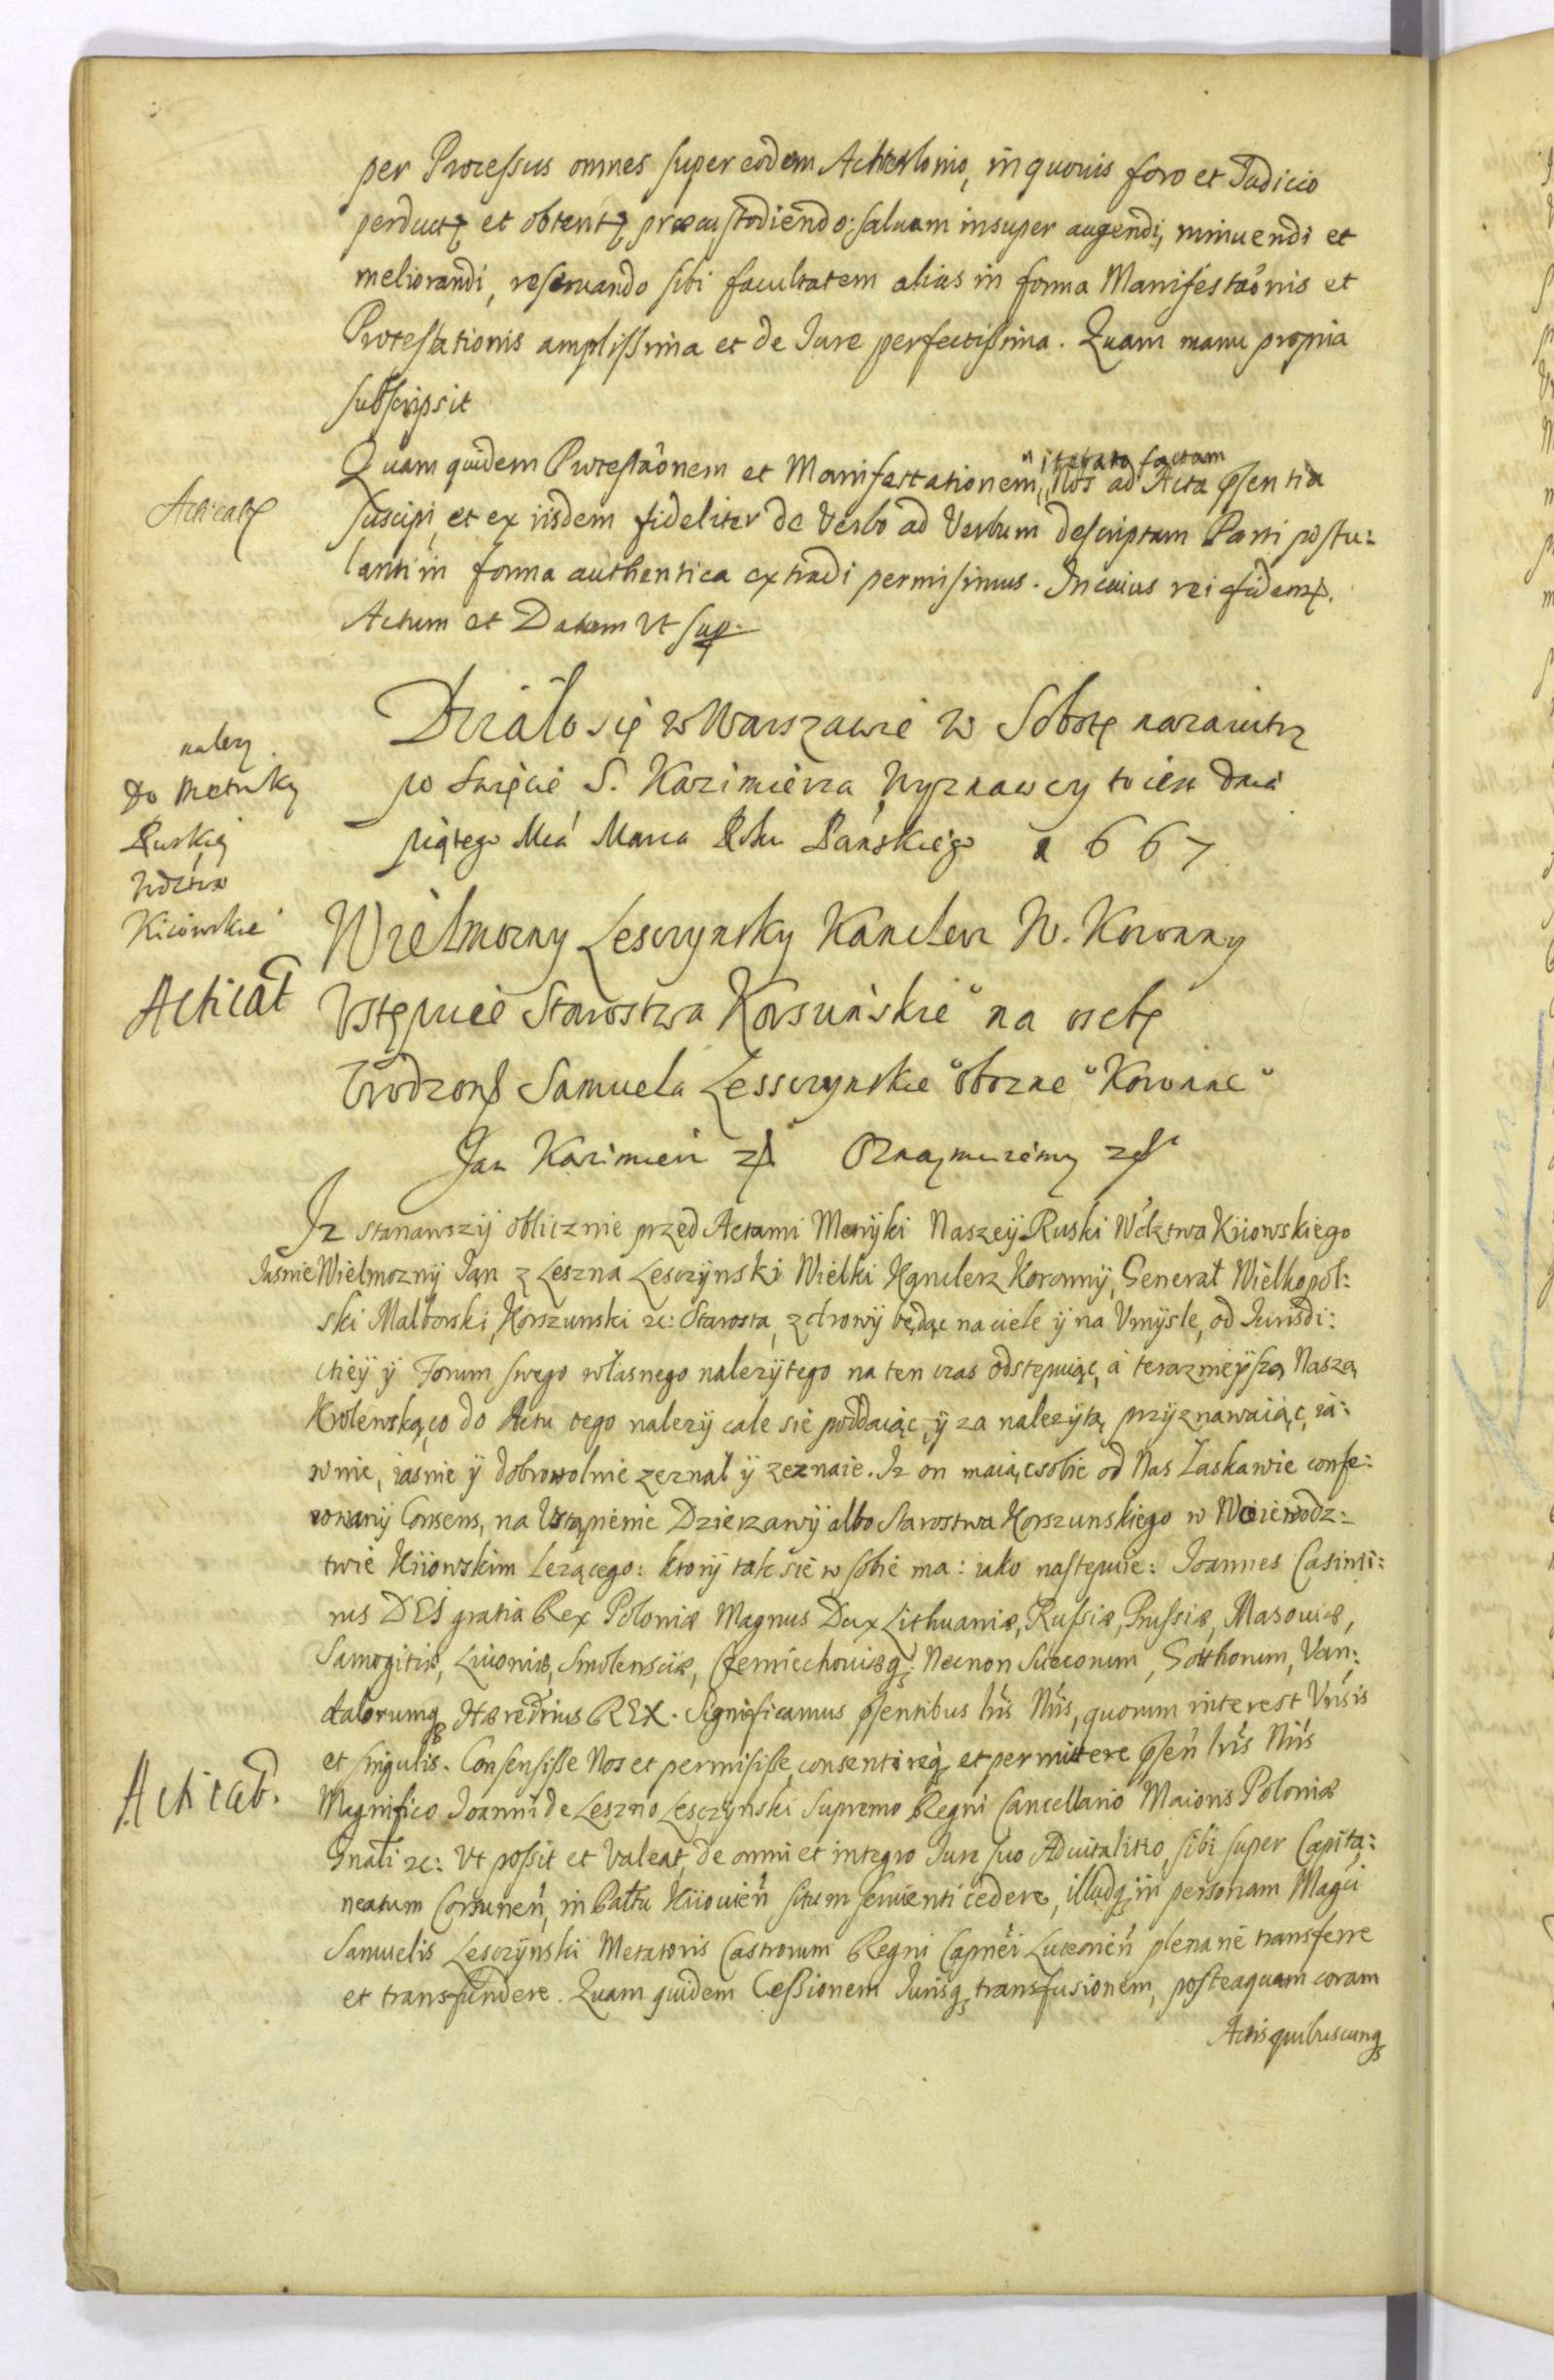 per Processus omnes super eodem Achterlonio, in quovis foro et Judicio
perductę et obtentę præcustodiendo: salvam insuper augendi, minuendi et
meliorandi, reservando sibi facultatem alias in forma Manifestaõnis et
Protestationis amplissima et de Iure perfectissima. Quam manu propria
subscripsit
Quam quidem Protestaõnem et Manifestationem,
" iterato factam
Nos ad Acta pſentia
Acticat
suscipi, et ex iisdem fideliter de Verbo ad Verbum descriptam Parti postu:
lanti in forma authentica extradi permisimus. In cuius rei fidem.
Actum et Datum Vt sup.
Działo się w Warszawie w Sobotę nazaiutrz
po święcie S. Kazimierza Wyznawcy to iest dnia
piątego Mca Marca Roku Pańskiego 1667
nalezy
do Metryky
Ruskiej
Wdztwa
Kiiowskie°
Wielmozny Lesczynsky Kanclerz W. Koronny
Acticat
Vstępuie Starostwa Korsuńskie° na osobę
Vrodzon° Samuela Lessczynskie° obozne° Koronne°
Jan Kazimierz z Oznajmuiemy z
Iz stanąwszy oblicznie przed Actami Metryki Naszey Ruski Wdztwa Kiiowskiego
Jasnie Wielmozny Jan z Leszna Lesczynski Wielki Kanclerz Koronny, Generał Wielkopol:
ski Malborski, Korszunski zc: Starosta, zdrowy będąc na ciele y na Vmysle, od Jurisdi:
ctiey y Forum swego własnego nalezytego na ten czas odstępuiąc, a terazneyszą Naszą
Krolewską, co do Actu tego nalezy cale się poddaiąc, y za nalezytą przyznawaiąc, ia:
wnie, iasnie y dobrowolnie zeznał y zeznaie. Iz on maiąc sobie od Nas Łaskawie confe:
rowany Consens, na Vstąpienie Dzierzawy albo Starostwa Korszunskiego w Woiewodz:
twie Kiiowskim lezącego: ktory tak się w sobie ma: iako następuie: Joannes Casimi:
rus DEI gratia Rex Poloniæ Magnus Dux Lithuaniæ, Russiæ, Prussiæ, Masouiæ,
Samogitiæ, Liuoniæ, Smolensciæ, Czerniechouiæq; Necnon Suecorum, Gotthorum, Van:
dalorumq Hæredrius REX. Significamus pſentibus lris Nris, quorum interest Vnisis
et singulis. Consensisse Nos et permisisse, consentireq et permittere pſen lris Nris
Acticat.
Magnifico Joanni de Leszno Lesczynski Supremo Regni Cancellario Maioris Poloniæ
Gnali zc: Vt possit et Valeat, de omni et integro Iure suo Aduitalitio, sibi super Capita:
neatum Corsunen, in Pałtu Kiiouien situm seruienti cedere, illudq in personam Magci
Samuelis Lesczynski Metatoris Castrorum Regni Capnei Luceorien plenarie transferre
et transfundere. Quam quidem Cessionem Iurisq transfusionem, posteaquam coram
Actis quibuscunq